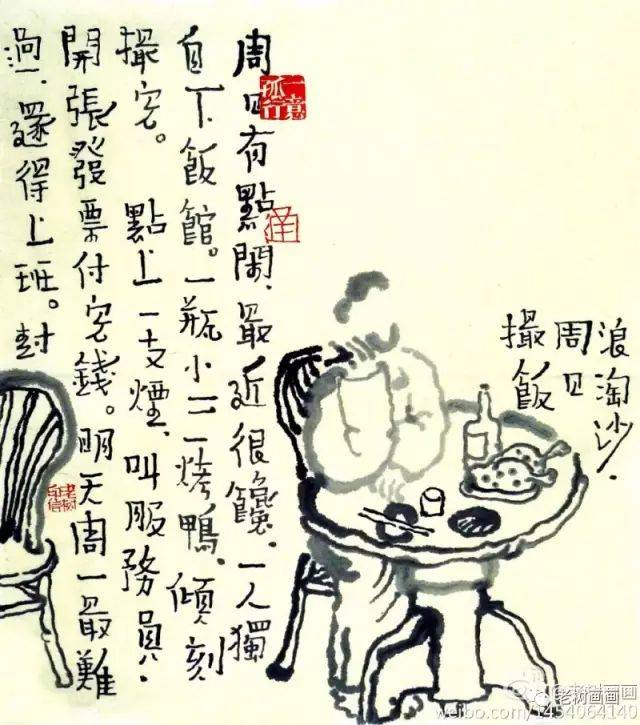 浪淘沙·
周日
撮飯
周日有點閑、最近很饞、一人獨
自下飯館。一瓶小二一烤鴨、傾刻
撮完。點上一支煙、叫服務員、
開張發票付完錢。明天周一最難
過、還得上班。封
一意孤行
老树画画
weibo.com/1454064140